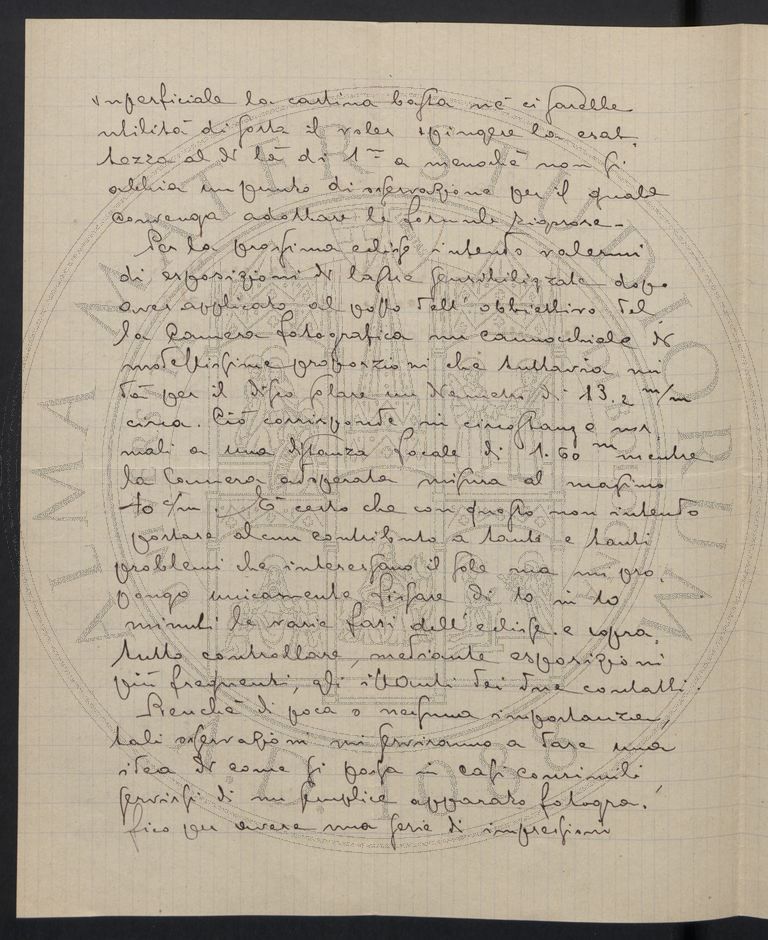 superficiale la cartina basta nè ci sarebbe
utilità di sorta il voler spingere la esat-
tezza al di là di 1ᵐ a menochè non si
abbia un punto di osservazione per il quale
convenga adottare le formule rigorose.
Per la prossima eclisse intendo valermi
di esposizioni di lastre sensibilizzate dopo
aver applicato al posto dell'obbiettivo del
la Camera fotografica un cannocchiale di
modestissime proporzioni che tuttavia mi
dà per il disco solare un diametro di 13.2 m/m
circa. Ciò corrisponde in circostanze nor
mali a una distanza focale di 1.60 m mentre
la Camera adoperata misura al massimo
40 c/m. È certo che con questo non intendo
portare alcun contributo a tanti e tanti
problemi che interessano il sole ma mi pro-
pongo unicamente fissare di 10 in 10
minuti le varie fasi dell'eclisse e sopra-
tutto controllare, mediante esposizioni
più frequenti, gli istanti dei due contatti.
Benchè di poca o nessuna importanza,
tali osservazioni mi serviranno a dare una
idea di come si possa in casi consimili
servirsi di un semplice apparato fotogra-
fico per avere una serie di impressioni
ALMA MATER STUDIORUM
A.D. 1088